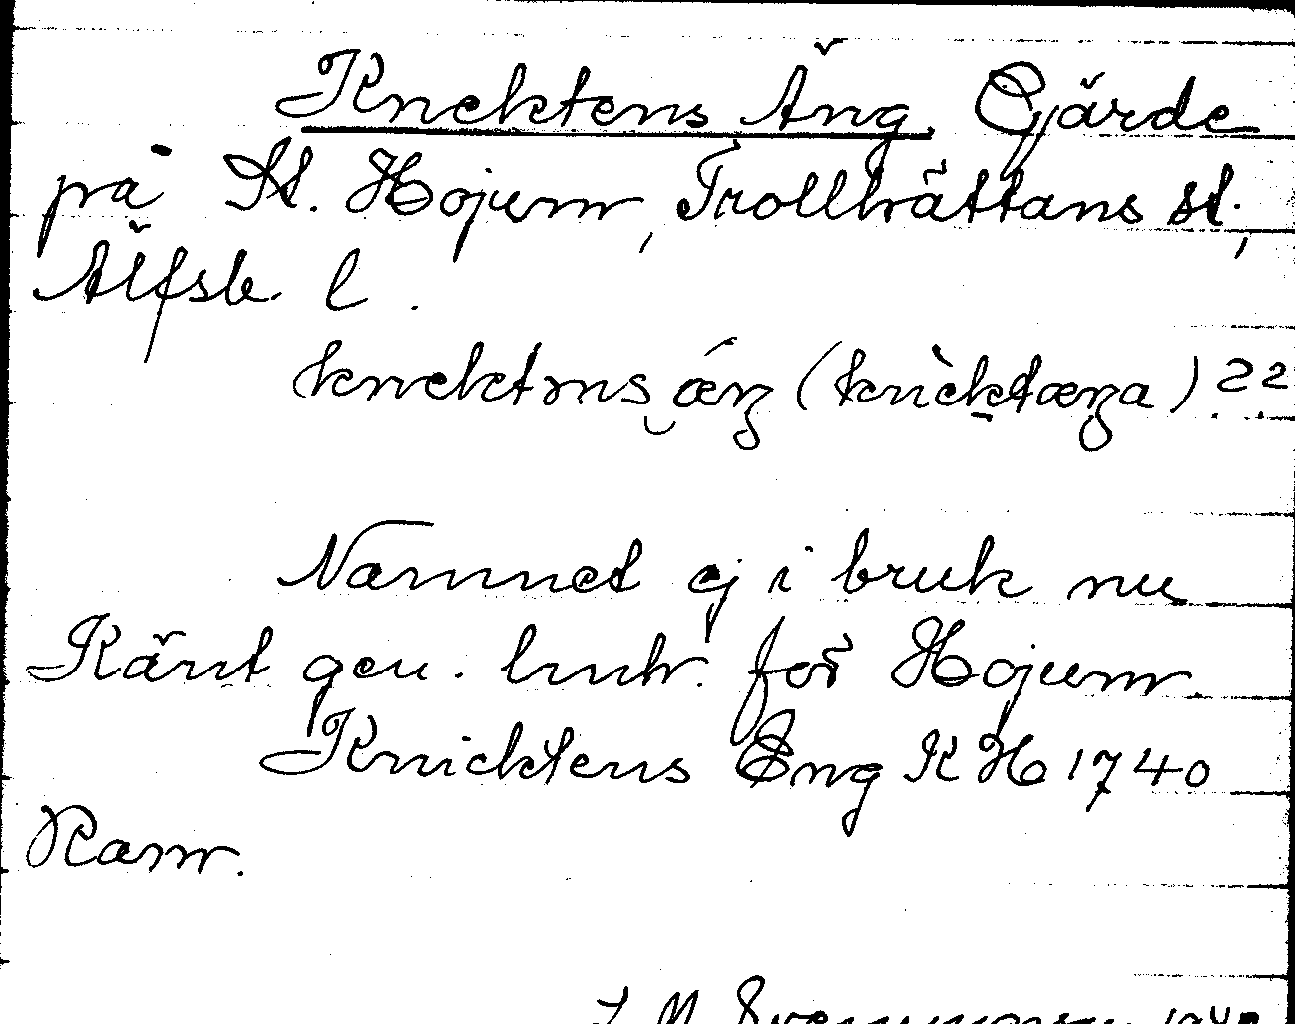 Knektens Äng. Gjärde
på St. Hojum, Trollhättans st.,
Älfsb. l.
knektǝns æŋ (knècktæŋa) 22
Namnet ej i bruk nu
Känt gen. lmh. för Hojum.
Knicktens Eng KH 1740
Ram.